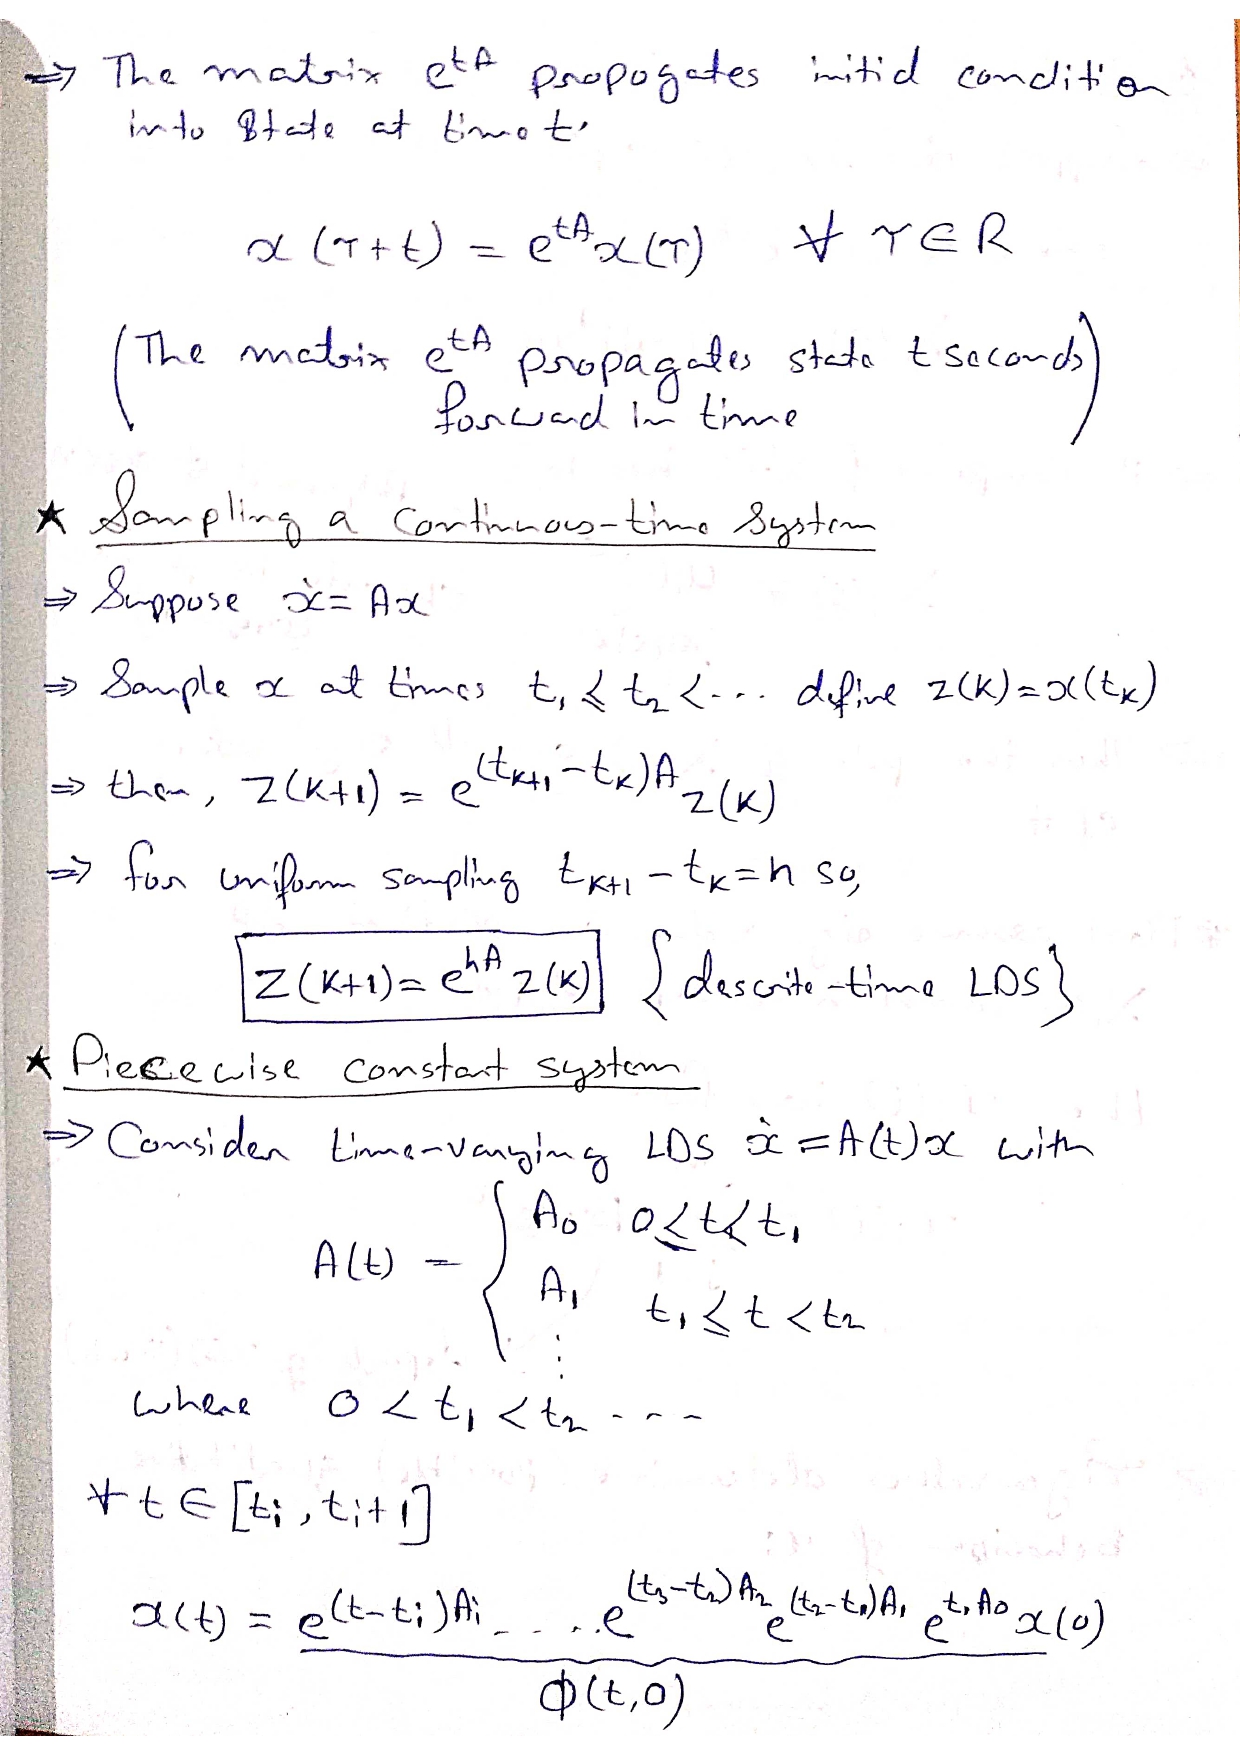 ⇒ The matrix e^{tA} propogates initial condition
into state at time t.
x(τ+t) = e^{tA}x(τ) ∀ τ∈R
(The matrix e^{tA} propagates state t seconds
forward in time)
★ Sampling a continuous-time system
⇒ Suppose ẋ = Ax
⇒ Sample x at times t₁ ≤ t₂ < ... define z(K)=x(t_K)
⇒ then, Z(K+1) = e^{(t_{K+1}-t_K)A} z(K)
⇒ for uniform sampling t_{K+1} - t_K = h so,
Z(K+1) = e^{hA} z(K) {descrite-time LDS}
★ Piecewise constant system
⇒ Consider time-varying LDS ẋ = A(t)x with
A(t) = { A₀ 0 ≤ t < t₁
A₁ t₁ ≤ t < t₂
⋮
where 0 < t₁ < t₂ ----
∀ t ∈ [t_i, t_{i+1}]
x(t) = e^{(t-t_i)A_i} ..... e^{(t₃-t₂)A₂} e^{(t₂-t₁)A₁} e^{t₁A₀} x(0)
Φ(t,0)